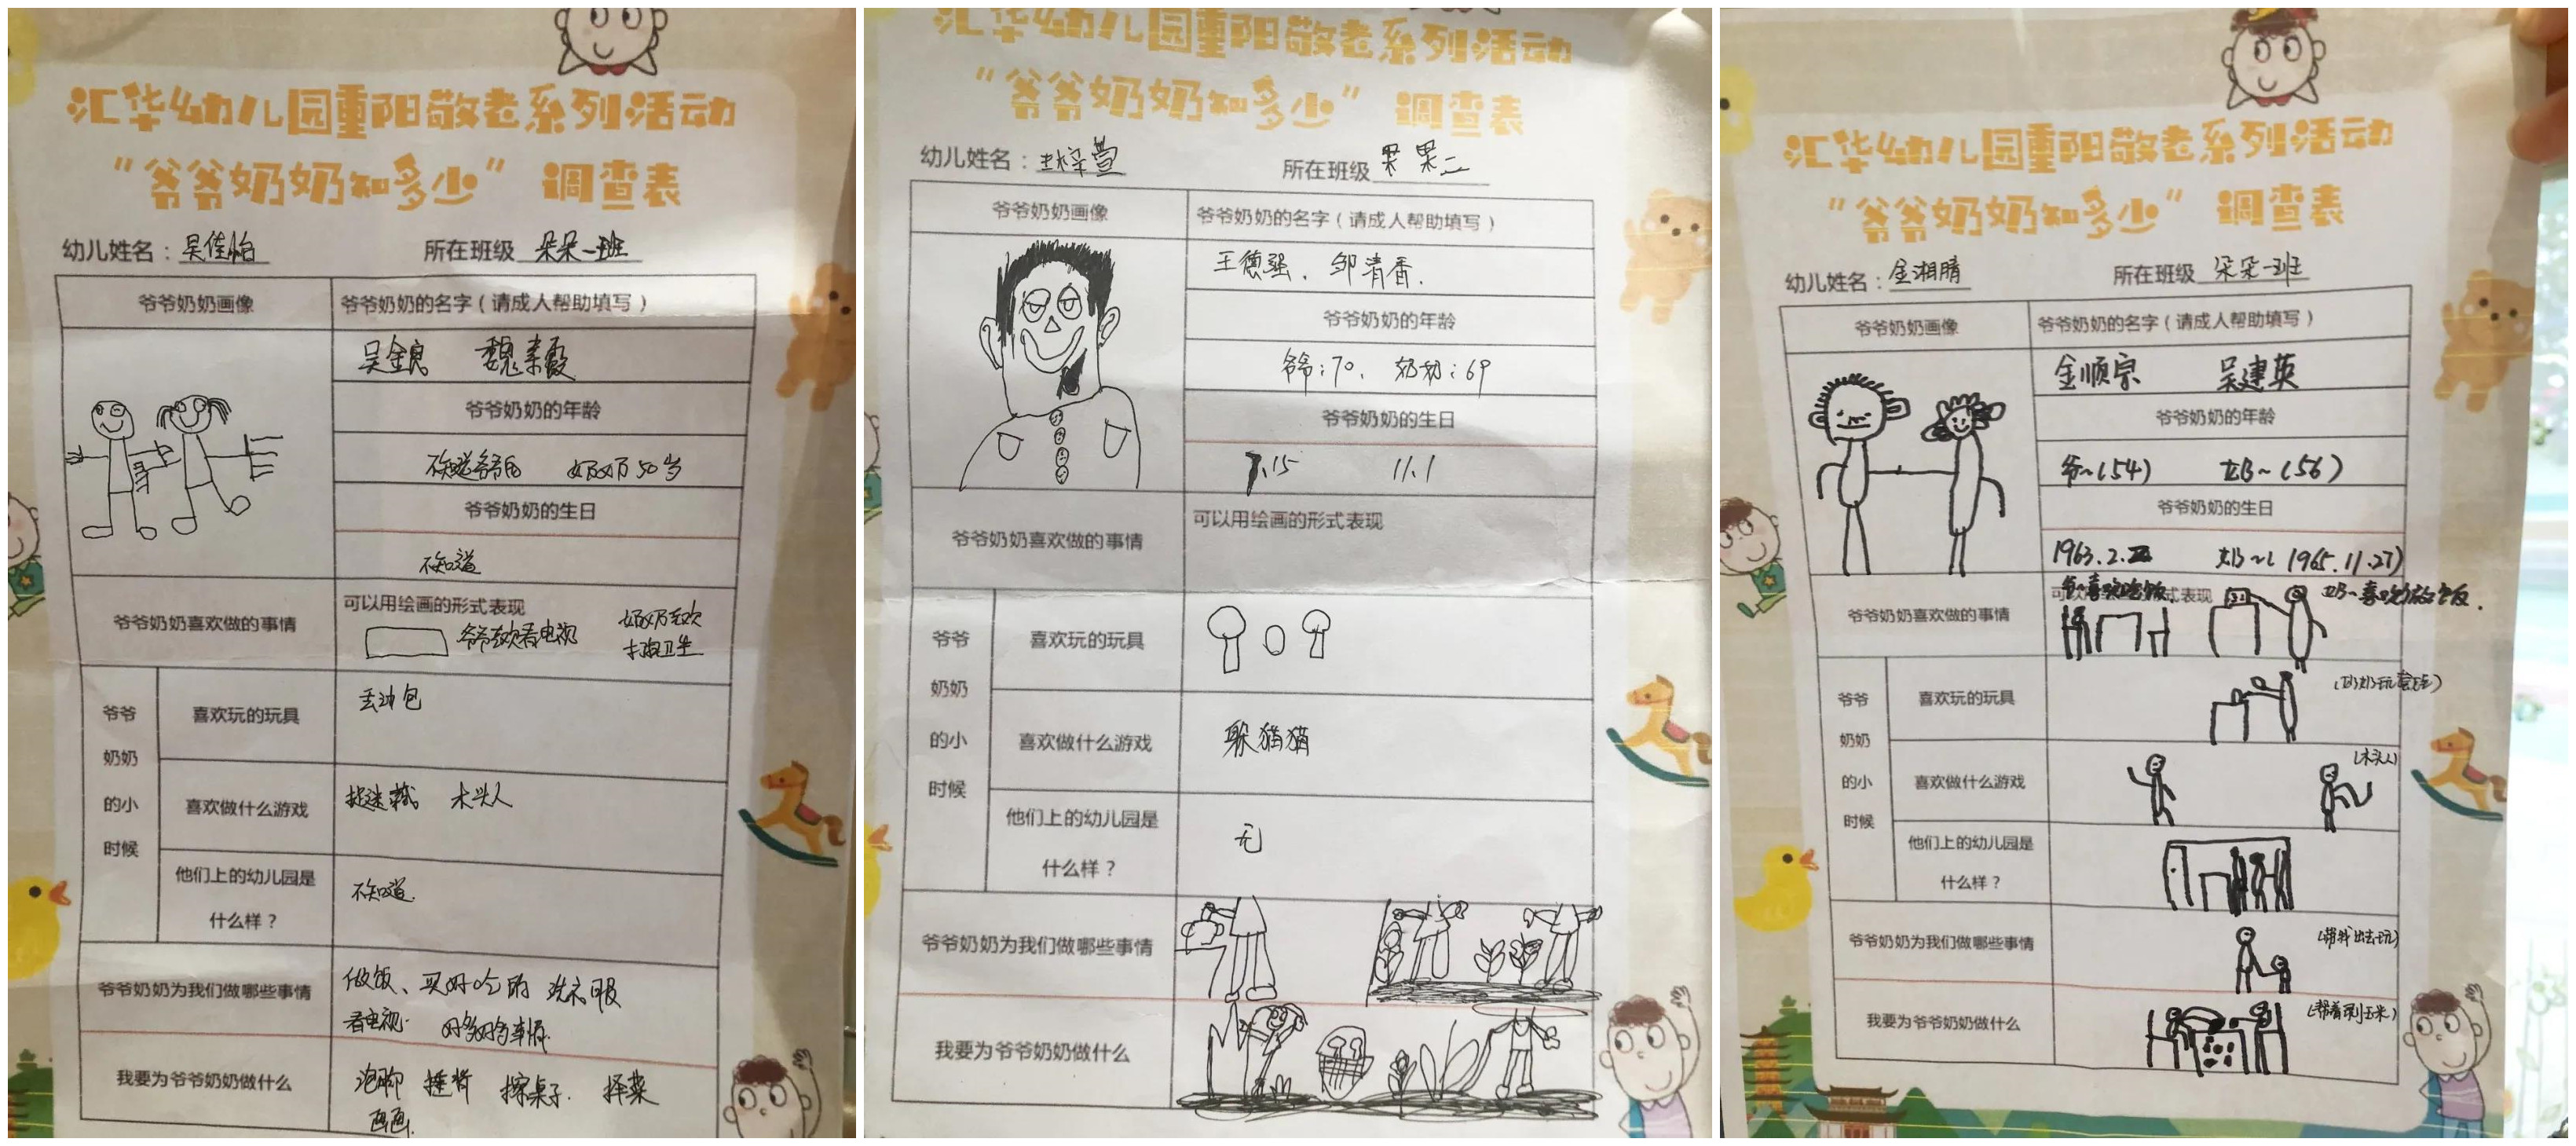 汇华幼儿园重阳敬老系列活动
“爷爷奶奶知多少” 调查表
幼儿姓名：吴佳怡 所在班级 朵朵一班
爷爷奶奶画像
爷爷奶奶的名字（请成人帮助填写）
吴金良 魏素霞
爷爷奶奶的年龄
不知道爷爷的 奶奶50岁
爷爷奶奶的生日
不知道
爷爷奶奶喜欢做的事情
可以用绘画的形式表现
爷爷喜欢看电视
奶奶喜欢
打扫卫生
爷爷
奶奶
的小
时候
喜欢玩的玩具
丢沙包
喜欢做什么游戏
捉迷藏 木头人
他们上的幼儿园是
什么样？
不知道.
爷爷奶奶为我们做哪些事情
做饭、买好吃的 洗衣服
看电视. 好多好多事情.
我要为爷爷奶奶做什么
泡脚 捶背 擦桌子. 择菜
画画.
汇华幼儿园重阳敬老系列活动
“爷爷奶奶知多少” 调查表
幼儿姓名：王梓萱 所在班级 果果二
爷爷奶奶画像
爷爷奶奶的名字（请成人帮助填写）
王德强. 邹清香.
爷爷奶奶的年龄
爷爷:70. 奶奶:69
爷爷奶奶的生日
7.15 11.1
爷爷奶奶喜欢做的事情
可以用绘画的形式表现
爷爷
奶奶
的小
时候
喜欢玩的玩具
喜欢做什么游戏
躲猫猫
他们上的幼儿园是
什么样？
无
爷爷奶奶为我们做哪些事情
我要为爷爷奶奶做什么
汇华幼儿园重阳敬老系列活动
“爷爷奶奶知多少” 调查表
幼儿姓名：金湘晴 所在班级 朵朵一班
爷爷奶奶画像
爷爷奶奶的名字（请成人帮助填写）
金顺宗 吴建英
爷爷奶奶的年龄
爷~(54) 奶~(56)
爷爷奶奶的生日
1963.2. 奶~( 1965.11.27)
爷爷奶奶喜欢做的事情
爷~喜欢吃饭.
奶~喜欢做饭.
爷爷
奶奶
的小
时候
喜欢玩的玩具
喜欢做什么游戏
(木头人)
他们上的幼儿园是
什么样？
爷爷奶奶为我们做哪些事情
(带我出去玩)
我要为爷爷奶奶做什么
(帮着剥玉米)